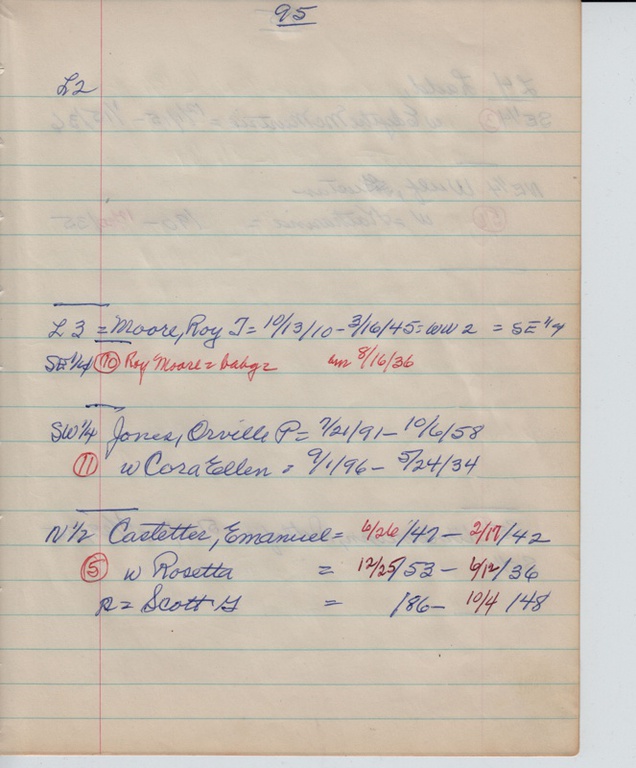 95
L2
L3 = Moore, Roy T = 10/13/10 - 3/16/45 = WW2 = SE 1/4
SE 1/4 10 Roy Moore = baby = 8/16/36
SW 1/4 Jones, Orville P = 7/21/91 - 10/6/58
11 w Cora Ellen = 9/1/96 - 5/24/34
N 1/2 Castetter, Emanuel = 6/26/47 - 2/17/42
5 w Rosetta = 12/25/53 - 6/12/36
= Scott G = /86 - 10/4/48